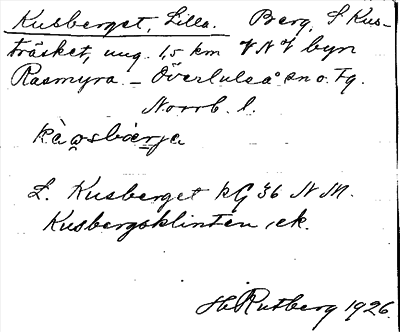 Kusberget, Lilla. Berg, S Kus-
träsket, ung. 1,5 km VNV byn
Rasmyra. - Överluleå sn o. Tg.
Norrb. l.
L. Kusberget kG 36 N M.
Kusbergsklinten, ek.
H Rutberg 1926.